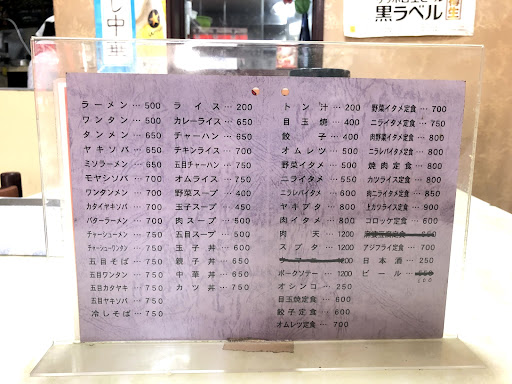 し中華
サッポロ生ビール
黒ラベル
ラーメン…500
ワンタン…500
タンメン…650
ヤキソバ…650
ミソラーメン…650
モヤシソバ…650
ワンタンメン…700
カタイヤキソバ…700
バターラーメン…700
チャーシューメン…750
チャーシューワンタン…750
五目そば…750
五目ワンタン…750
五目カタヤキ…750
五目ヤキソバ…750
冷しそば…750
ライス…200
カレーライス…650
チャーハン…650
チキンライス…700
五目チャーハン…750
オムライス…750
野菜スープ…400
玉子スープ…450
肉スープ…500
五目スープ…500
玉子丼…600
親子丼…650
中華丼…650
カツ丼…750
トン汁…200
目玉焼…400
餃子…400
オムレツ…500
野菜イタメ…500
ニライタメ…550
ニラレバイタメ…600
ヤキブタ…800
肉イタメ…800
肉天…1200
スブタ…1200
ポークソテー…1200
オシンコ…250
目玉焼定食…600
餃子定食…600
オムレツ定食…700
野菜イタメ定食…700
ニライタメ定食…750
肉野菜イタメ定食…800
ニラレバイタメ定食…800
焼肉定食…800
カツライス定食…800
肉ニライタメ定食…850
上カツライス定食…900
コロッケ定食…600
麻婆豆腐定食…650
アジフライ定食…700
日本酒…250
ビール…550
600